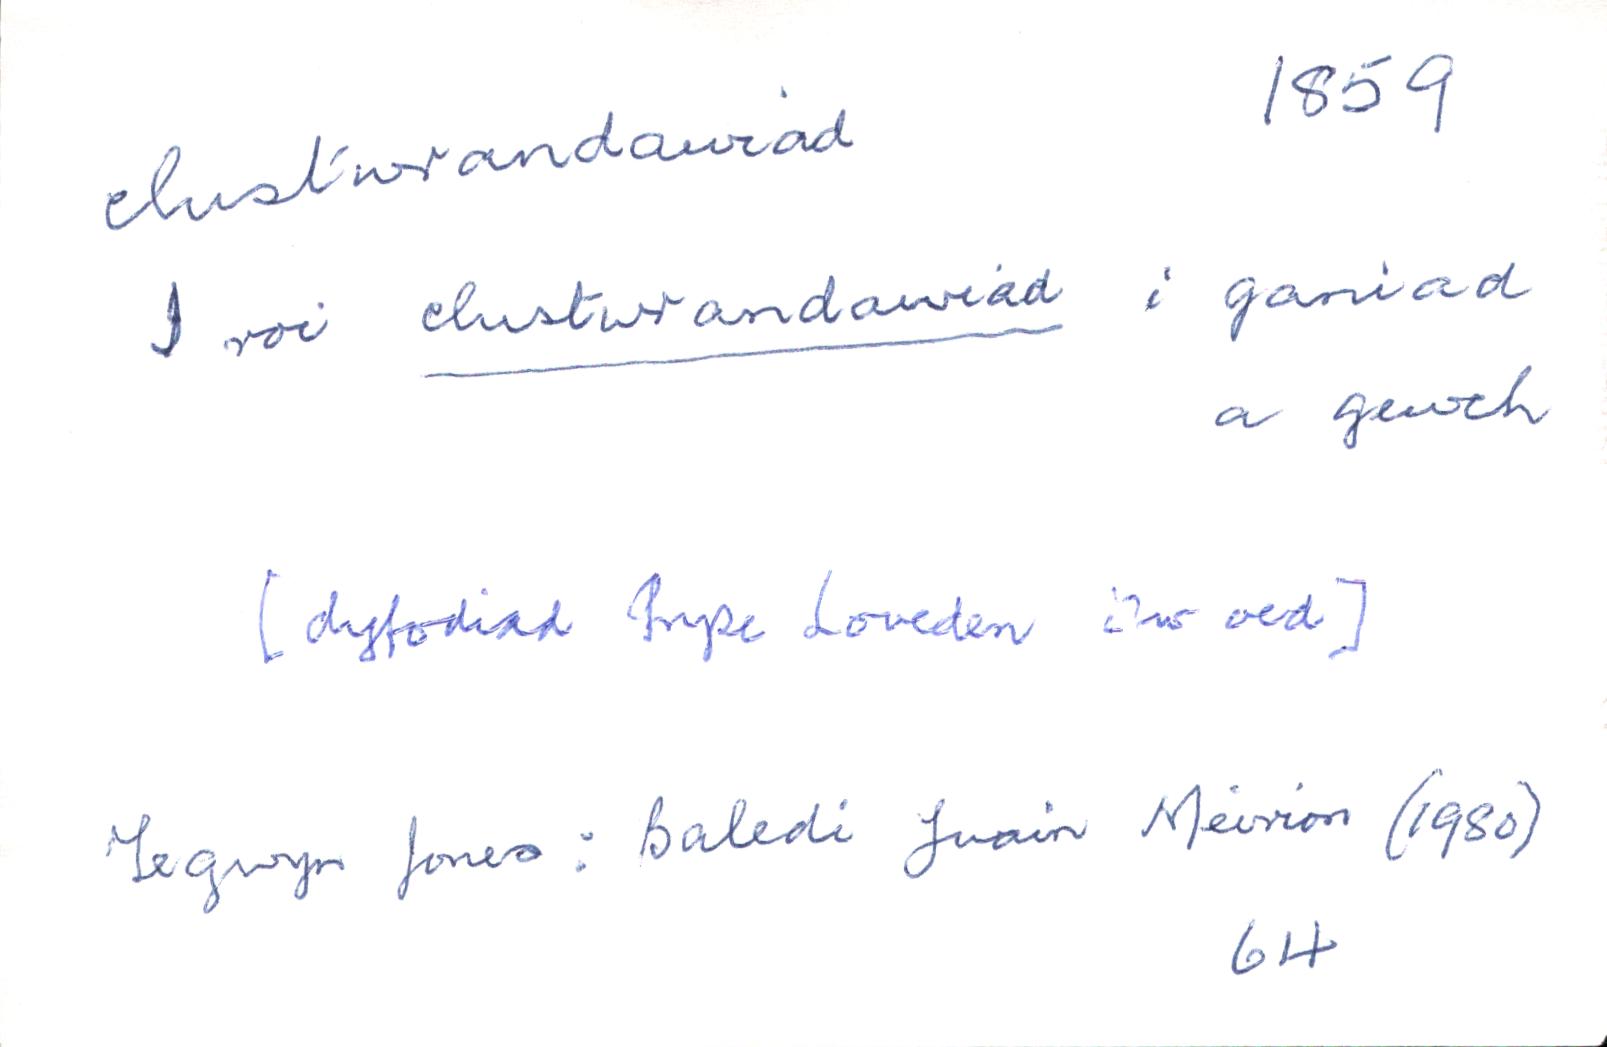 1859
clustwrandawiad
I roi clustwrandawiad i ganiad
a gewch
[dyfodiad Pryse Loveden i'w oed]
Tegwyn Jones: Baledi Ywain Meirion (1980)
64